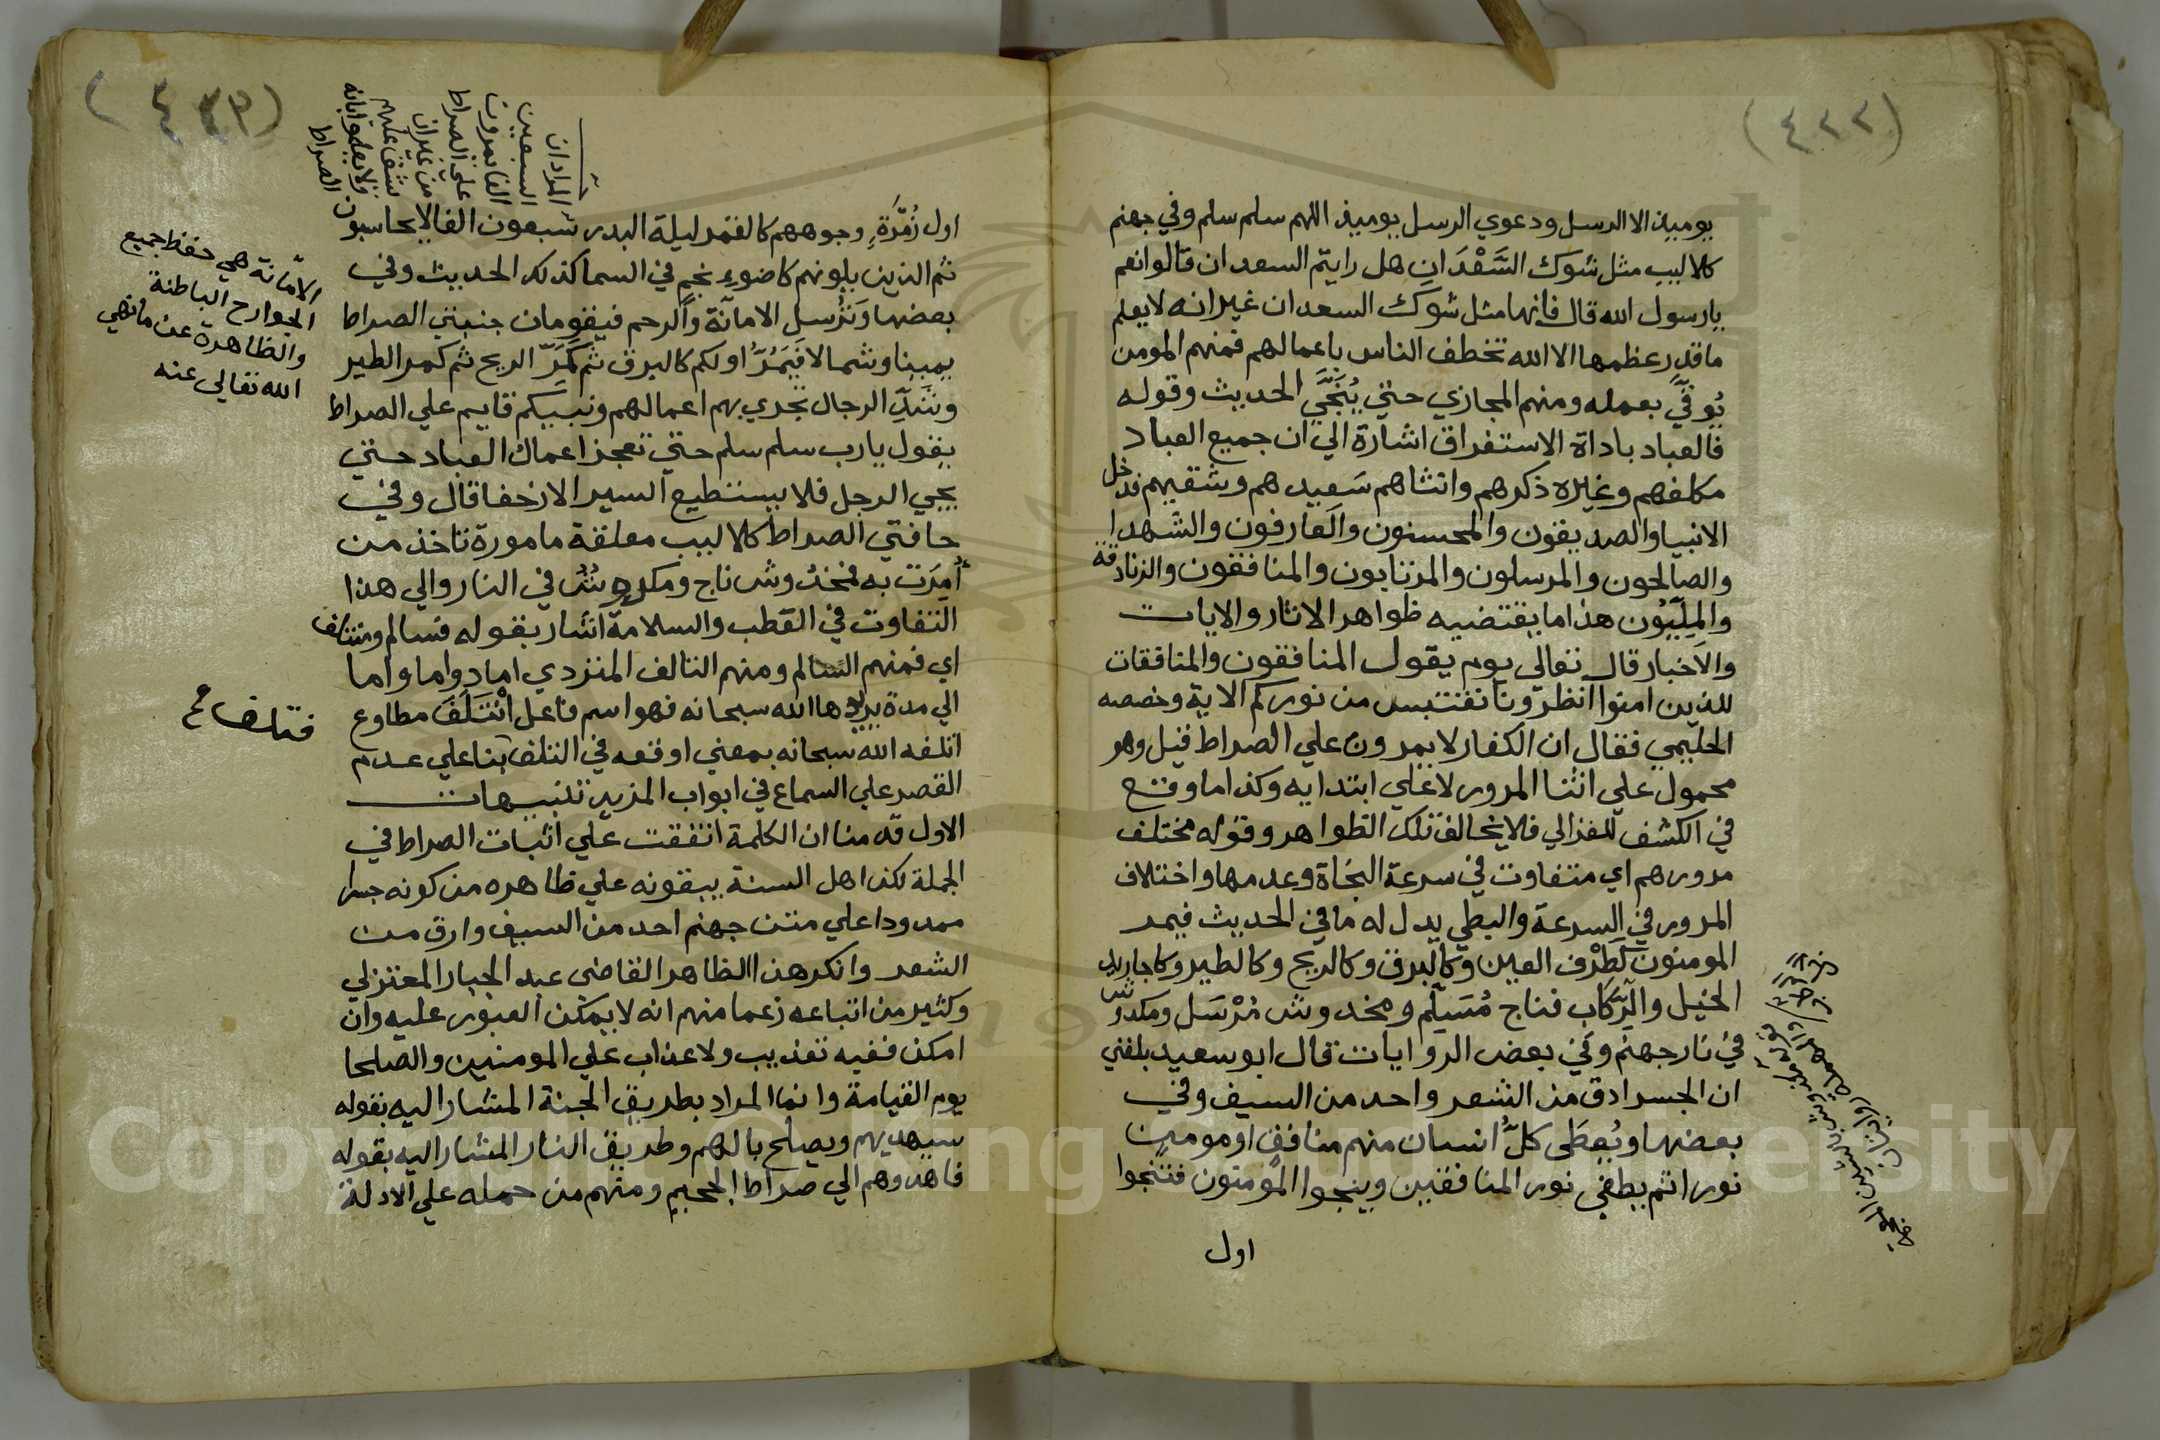 (٤٢٢)
يوميذ الا الرسل ودعوي الرسل يوميذ اللهم سلم سلم وفي جهنم
كلاليب مثل شوك السَّعْدَانِ هل رايتم السعدان قالوا نعم
يارسول الله قال فانها مثل شوك السعدان غير انه لا يعلم
ما قدر عظمها الا الله تخطف الناس باعمالهم فمنهم المومن
يُوقَّي بعمله ومنهم المجازي حتي يُنَجَّي الحديث وقوله
فالعباد باداة الاستغراق اشارة الي ان جميع العباد
مكلفهم وغيره ذكرهم وانثاهم سَعيدهم وشقيهم فدخل
الانبيا والصديقون والمحسنون والعارفون والشهدا
والصالحون والمرسلون والمرتابون والمنافقون والزنادقة
والمِلِّيُّون هذا ما يقتضيه ظواهر الاثار والايات
والاخبار قال تعالي يوم يقول المنافقون والمنافقات
للذين امنوا انظرونا نقتبس من نوركم الاية وخصصه
الحليمي فقال ان الكفار لا يمرون علي الصراط قيل وهو
محمول علي اثنا المرور لا علي ابتدايه وكذا ما وقع
في الكشف للغزالي فلا يخالف تلك الظواهر وقوله مختلف
مرورهم اي متفاوت في سرعة النجاة وعدمها واختلاف
المرور في السرعة والبطي يدل له ما في الحديث فيمر
المومنون كَطَرْف العين وكالبرق وكالريح وكالطير وكاجاويد
الخيل والرِّكَاب فناج مُسَلَّم ومخدوش مُرْسَل ومكدوش
في نار جهنم وفي بعض الروايات قال ابو سعيد بلغني
ان الجسر ادق من الشعر واحد من السيف وفي
بعضها ويُعطَي كلُّ انسان منهم منافق او مومن
نورا ثم يطفي نور المنافقين وينجوا المومنون فتنجوا
اول
(٤٢٣)
المراد ان
السبعين
الفا يمرون
علي الصراط
من غير ان
الصراط
اول زُمْرَةٍ وجوههم كالقمر ليلة البدر سبعون الفا لا يحاسبون
ثم الذين يلونهم كاضوءِ نجم في السما كذلك الحديث وفي
بعضها وتُرْسل الامانة والرحم فيقومان جنبتي الصراط
يمينا وشمالا فَيَمُرُّ اولكم كالبرق ثم كَمَرِّ الريح ثم كمر الطير
وشَدِّ الرجال تجري بهم اعمالهم ونبيكم قايم علي الصراط
يقول يارب سلم سلم حتي تعجز اعمال العباد حتي
يجي الرجل فلا يستطيع السير الا زحفا قال وفي
حافتي الصراط كلاليب معلقة مامورة تاخذ من
أُمِرَت به فمخدوش ناج ومكدوش في النار والي هذا
التفاوت في العطب والسلامة اشار بقوله فسالم ومنتلف
اي فمنهم السالم ومنهم التالف المتردي اما دواما واما
الي مدة يريدها الله سبحانه فهو اسم فاعل انْتَلَفَ مطاوع
اتلفه الله سبحانه بمعني اوقعه في التلف بنا علي عدم
القصر علي السماع في ابواب المزيد تنبيهات
الاول قدمنا ان الكلمة اتفقت علي اثبات الصراط في
الجملة لكن اهل السنة يبقونه علي ظاهره من كونه جسرا
ممدودا علي متن جهنم احد من السيف وارق من
الشعر وانكر هذا الظاهر القاضي عبد الجبار المعتزلي
وكثير من اتباعه زعما منهم انه لا يمكن العبور عليه وان
امكن ففيه تعذيب ولا عذاب علي المومنين والصلحا
يوم القيامة وانما المراد بطريق الجنة المشار اليه بقوله
سيهديهم ويصلح بالهم وطريق النار المشار اليه بقوله
فاهدوهم الي صراط الجحيم ومنهم من حمله علي الادلة
الامانة هي حفظ جميع
الجوارح الباطنة
والظاهرة عن ما نهي
الله تعالي عنه
Copyright © King Saud University